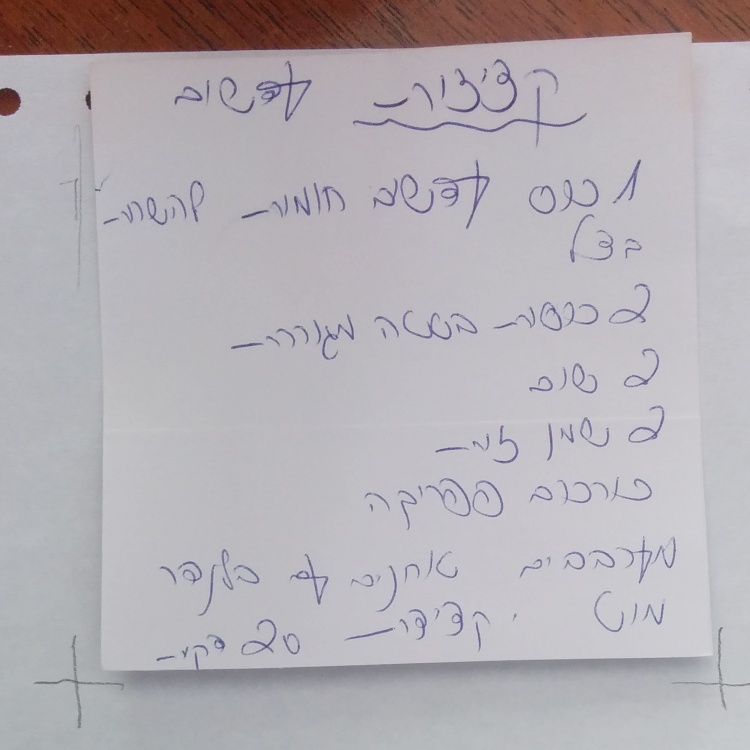 קציצות עדשים
1 כוס עדשים חומות להשרות
בצל
2 כוסות בטטה מגוררת
2 שום
2 שמן זית
כורכום פפריקה
מערבבים טוחנים עם בלנדר
מוט . קציצות 20 דקות